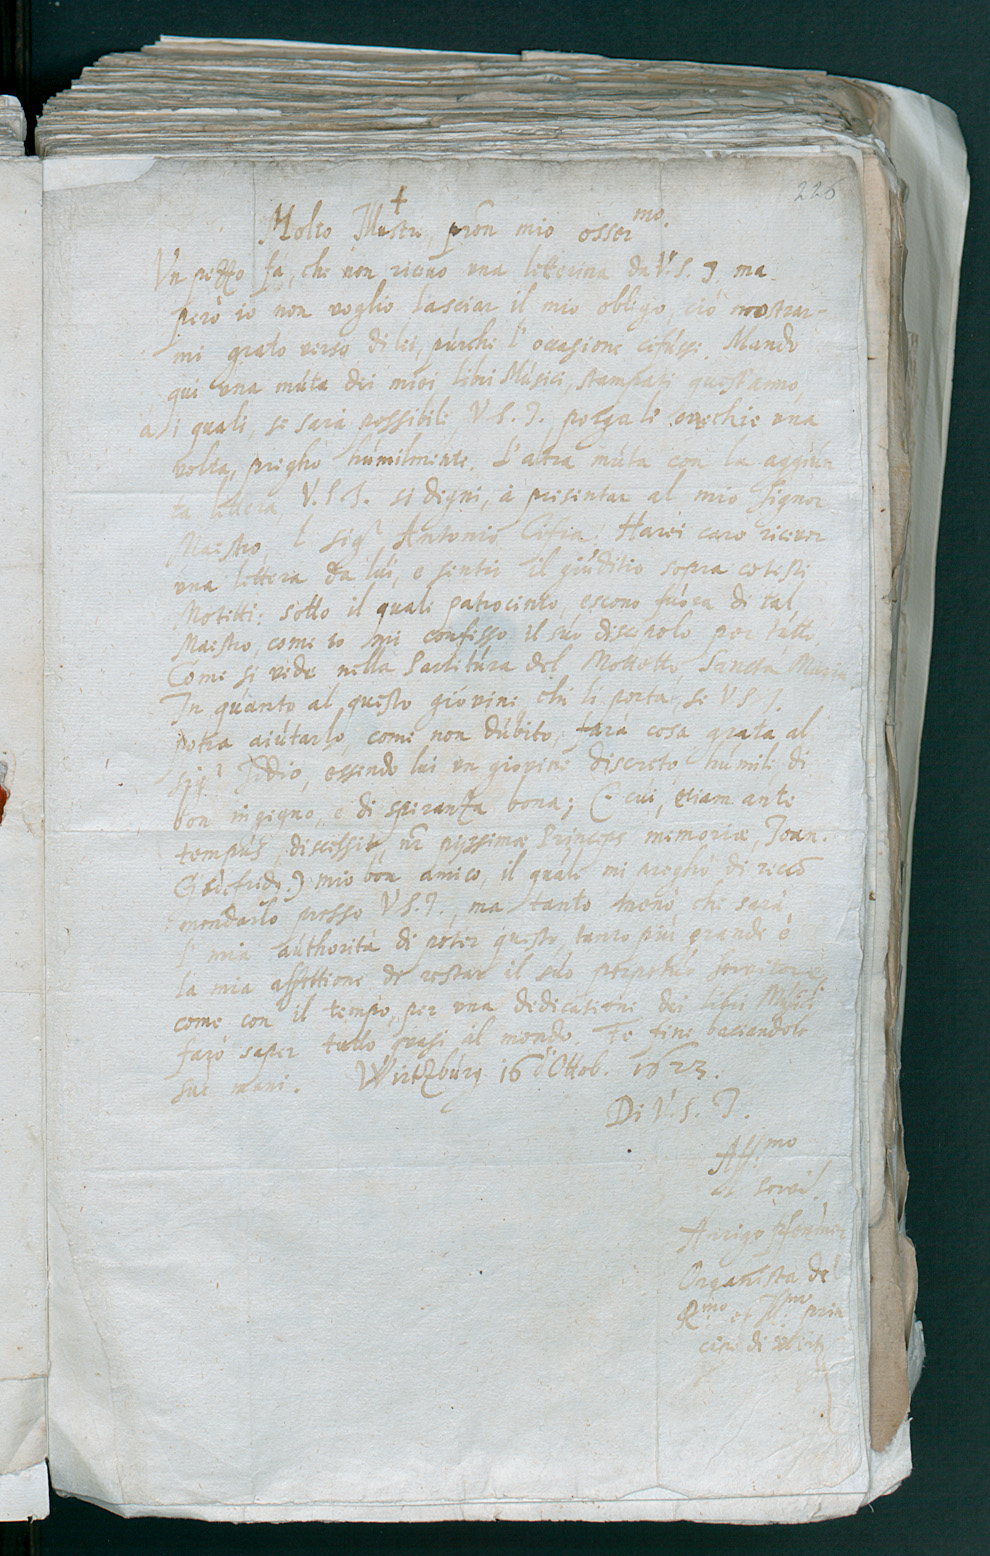 226
+
Molto Illustre, pron mio osser mo.
Un pezzo fà, che non riceuo una letterina da V. S. I. ma
però io non voglio lasciar il mio obligo, ciò mostrar-
mi grato verso di lei, purche l'occasione ci fusse. Mando
qui una mùta dei mioi libri Mùsici, stampati quest'anno,
a i quali, se sarà possibile V. S. I. porga le orechie una
volta, pregho humilmente. L'altra mùta con la aggiùn
ta lettera, V. S. I. si digni, à presentar al mio Signor
Maestro, l Sigr Antonio Cifra. Harei caro ricever
una lettera da lùi, e sentir il giùditio sopra cotesti
Motetti: sotto il quale patrocinio, escono fuora di tal
Maestro, come io mi confesso il sùo discipolo per tutto,
Come si vede nella Partitùra del Mottetto, Sancta Maria
In quanto al questo giovine, chi li porta, se V S I.
potra aiùtarlo, come non dùbito, farà cosa grata al
Sigr Iddio, essendo lui un giovine discreto, humile, di
bon ingegno, e di speranza bona; (: cui, etiam ante
tempus, discessit, piissimæ Princeps memoriæ, Joan.
Godefrid9.) mio bon amico, il quale mi preghò di reccõ
mendarlo presso V S. I., ma tanto meno che sarà
l' mia authorità di poter questo, tanto più grande è
la mia affettione de restar il sùo perpetùo servitore,
come con il tempo, per una dedicatione dei libri Mùsici
farò saper tutto quasi al mondo. Fo fine baciandole
sue mani. Wirtzbùrg. 16 d'Ottob. 1623.
Di V. S. I.
Aff mo
servi.
Arrigo Pfendner
Organista del
Rmo et Illmo prin
cipe di Wirtz